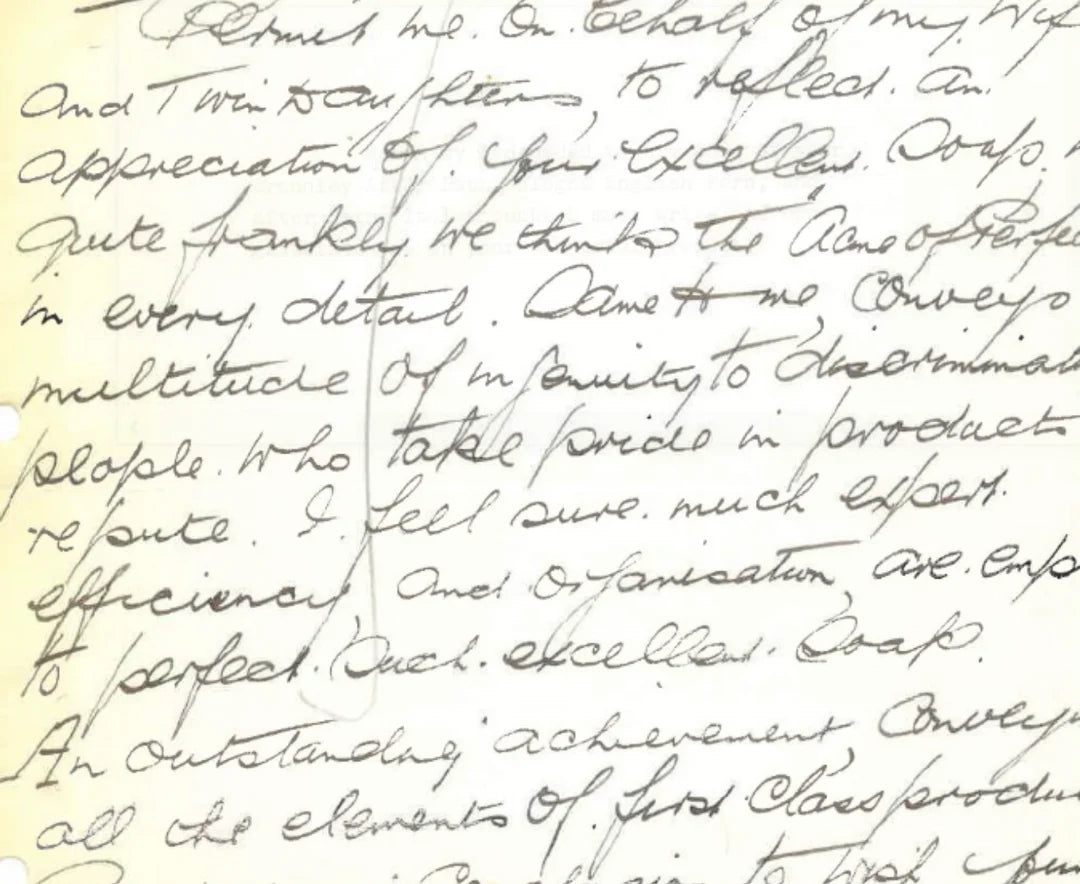 Permit me. On. behalf of my Wif
and Twin Daughters, to reflect. an.
appreciation of. your excellent. Soap.
Quite frankly we think the Acme of Perfec
in every detail. Same to me, conveys
multitude of ingenuity to discriminat
people. who take pride in products
repute. I. feel sure. much expert.
efficiency, and organisation, are. emp
to perfect. Such. excellent. Soap.
An outstanding achievement, Convey
all the elements of. first Class produc
to wish your